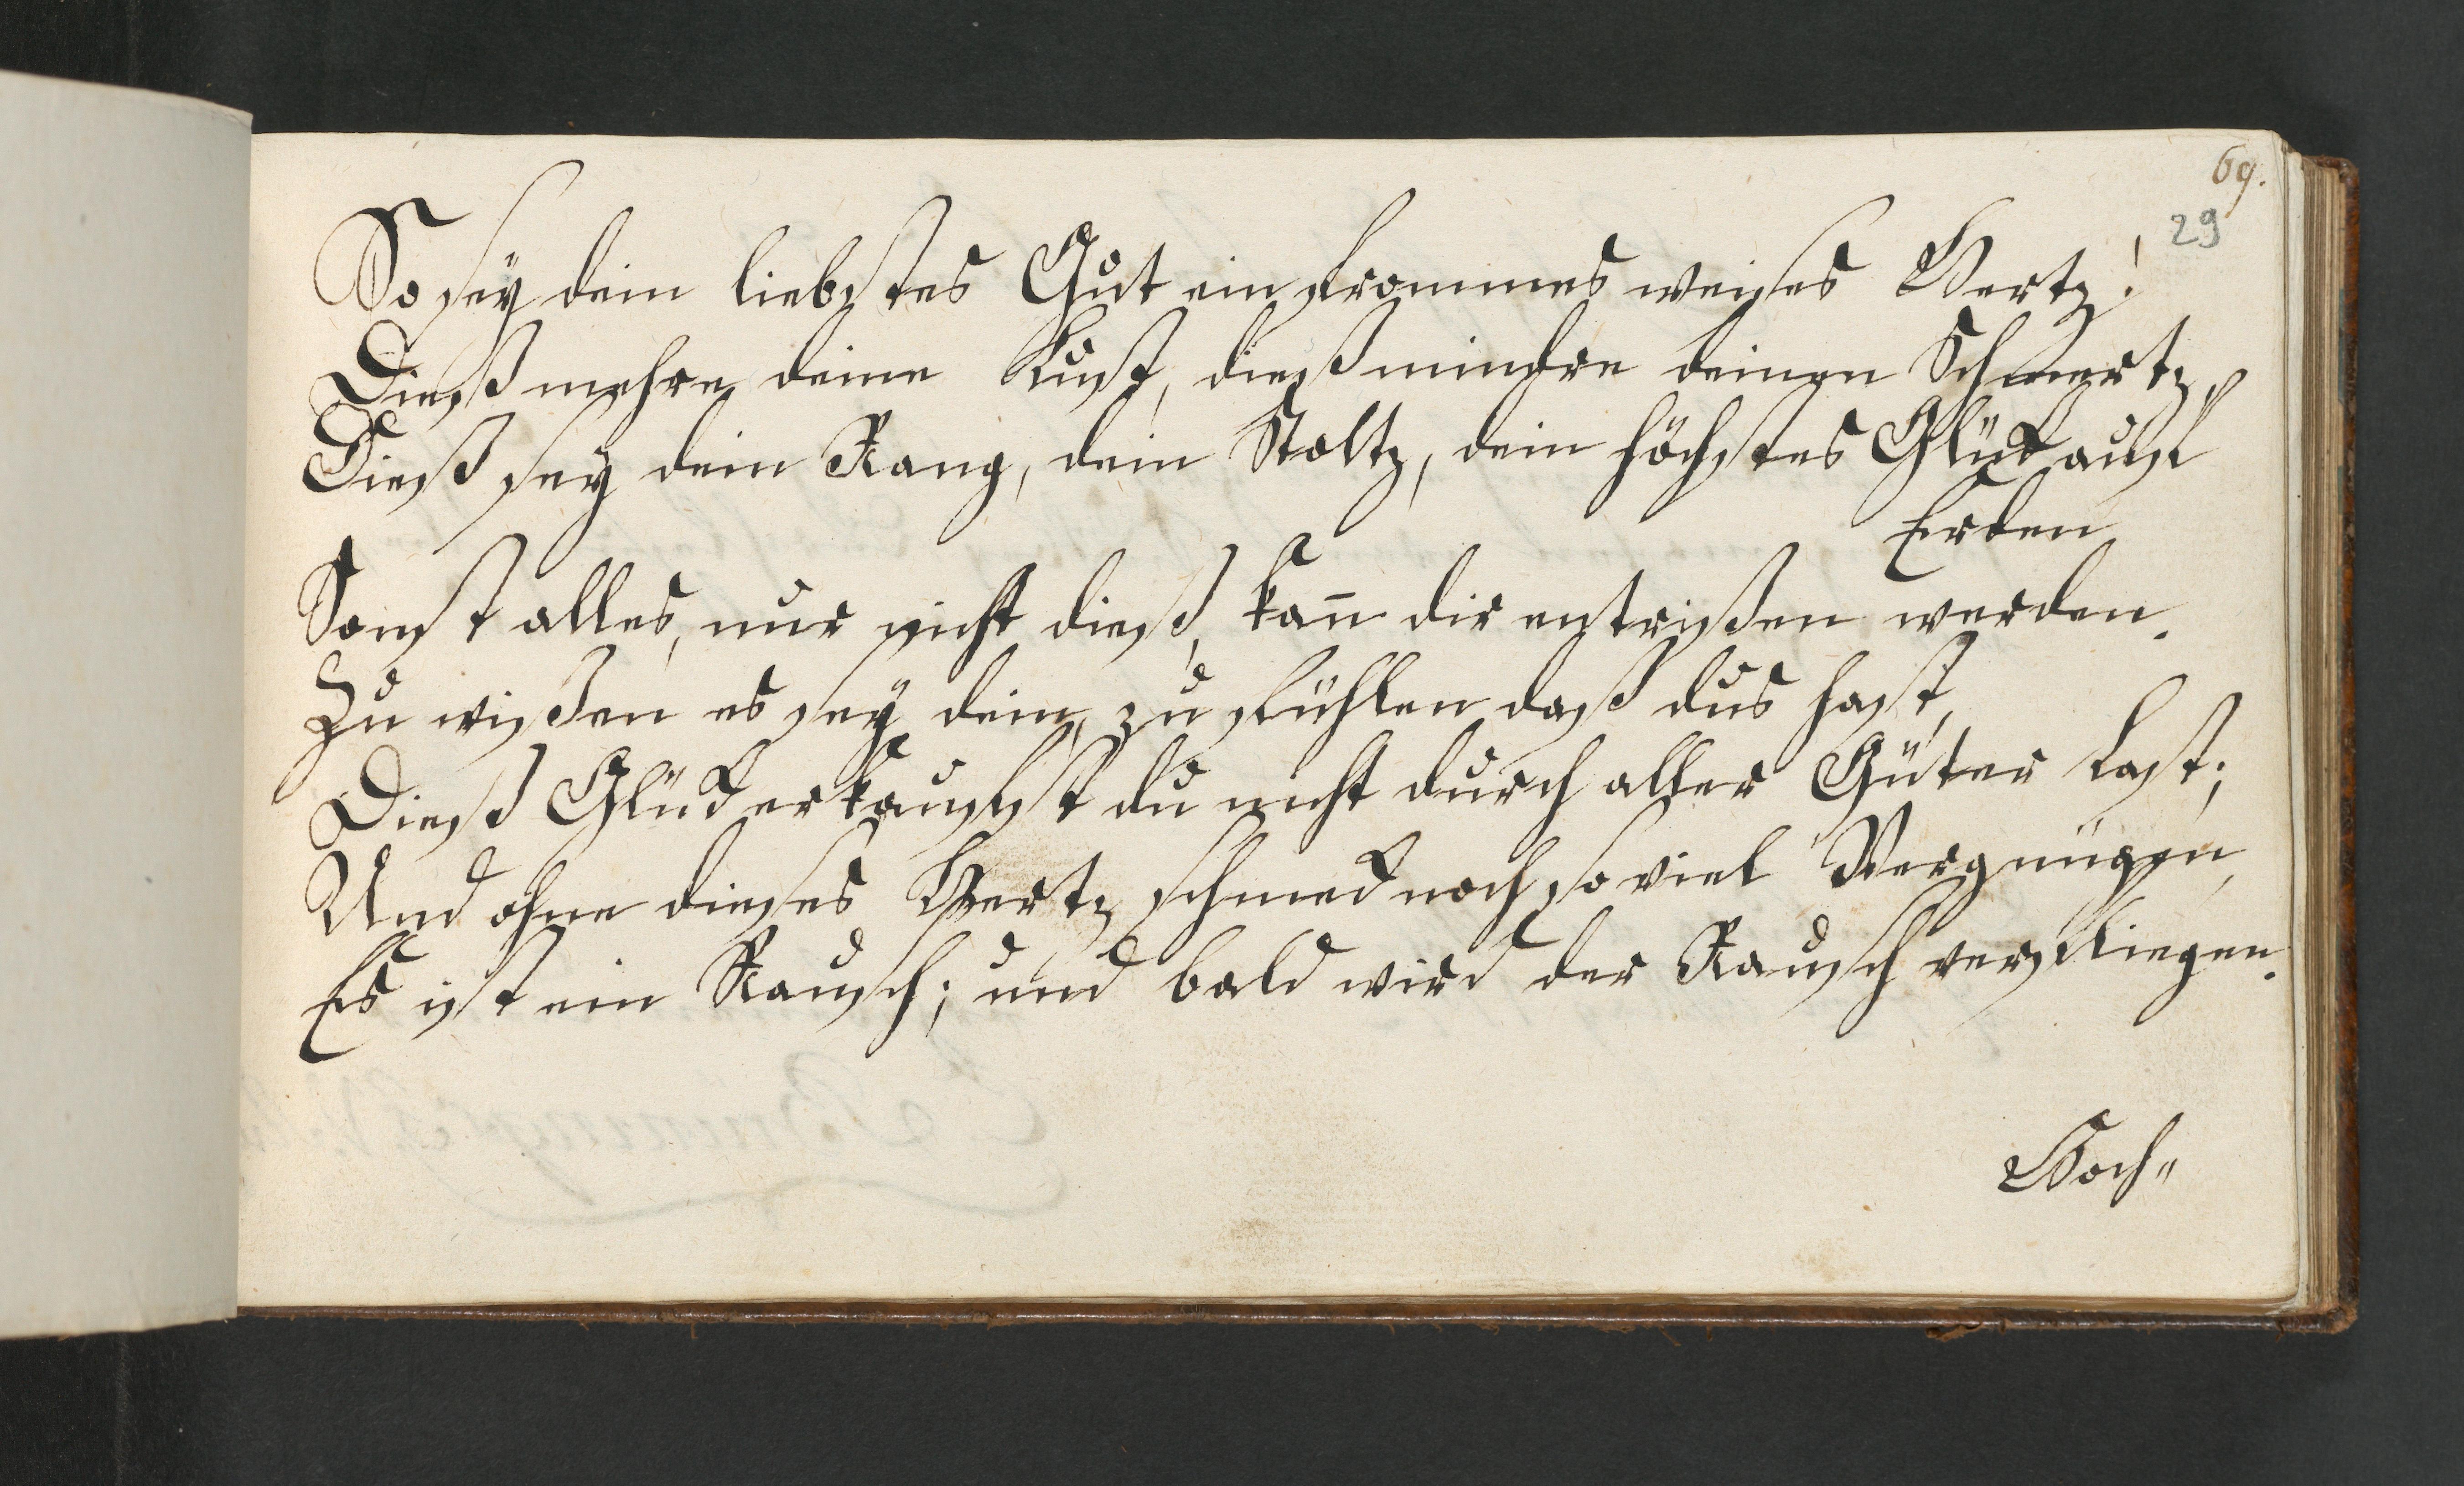 69.
29
So sey dein liebstes Gut ein frommes weises Hertz!
Dieß mehre deine Lust, dieß mindre deinen Schmertz,
Dieß sey dein Rang, dein Stoltz, dein höchstes Glük auf
Erden
Sonst alles, nur nicht dieß, kan̄ dir entrißen werden.
Zu wißen es sey dein, zu fühlen daß dus hast,
Dieß Glük erkaufst du nicht durch aller Güter Last;
Und ohne dieses Hertz schmek noch so viel Vergnügen,
Es ist ein Rausch; und bald wird der Rausch verfliegen.